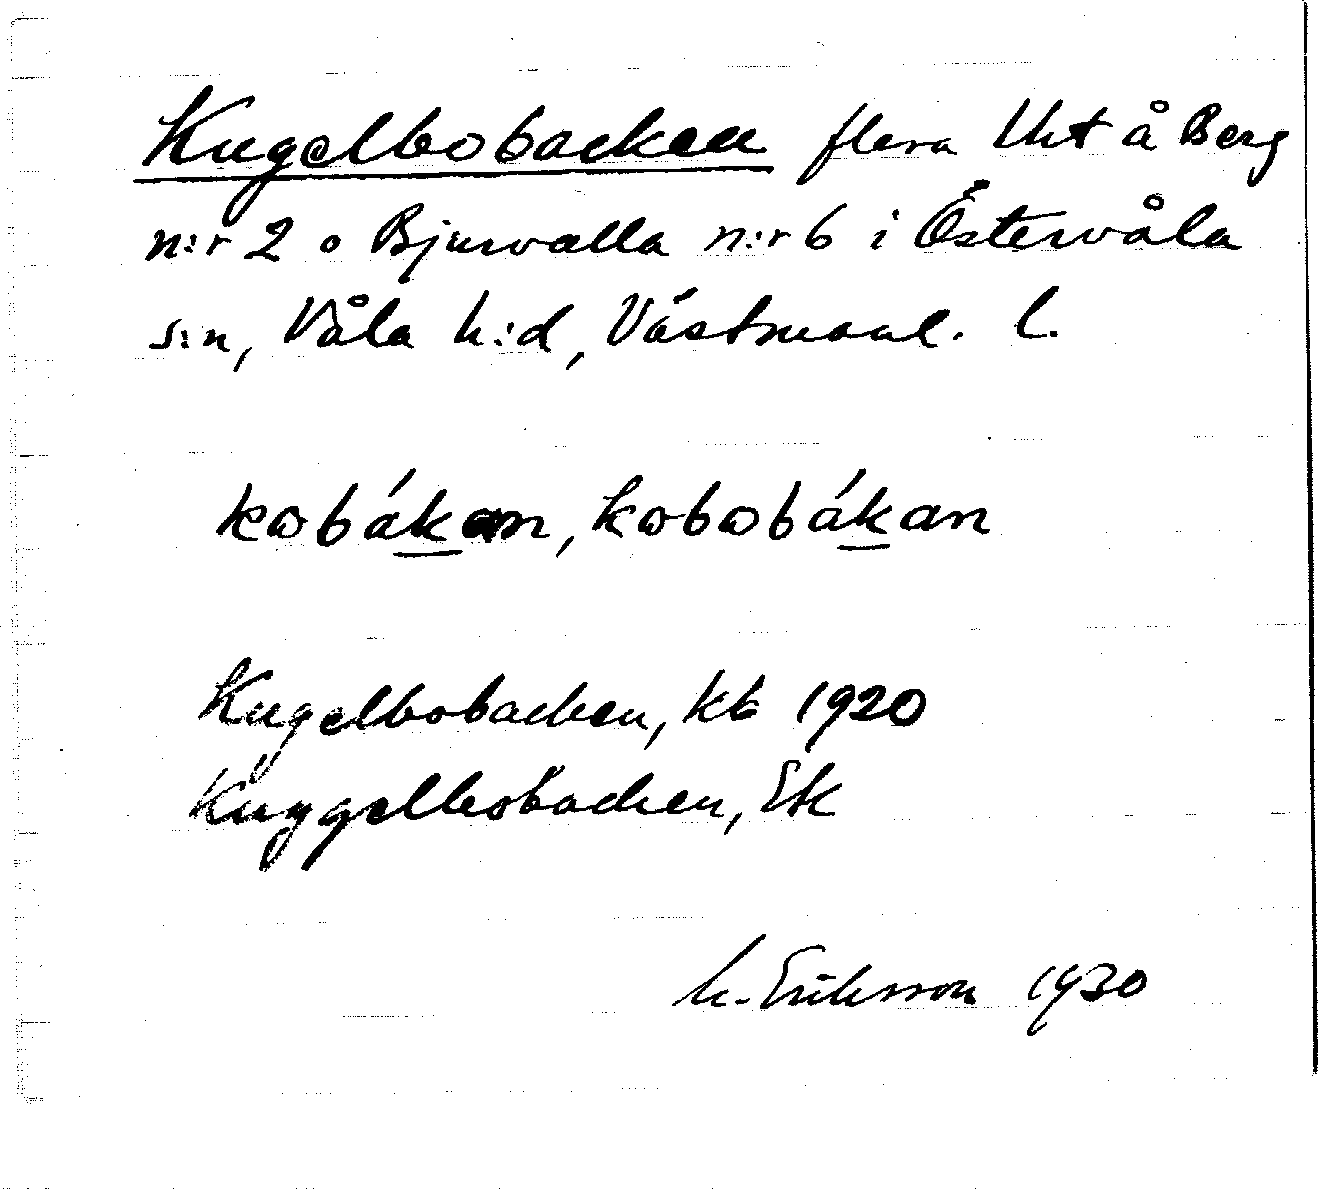 Kugelbobacken flera lht å Berg
n:r 2 o Bjurvalla n:r 6 i Östervåla
s:n, Våla h:d, Västmanl. l.
kobákan, kobobákan
Kugelbobacken, kb 1920
Kuggelbobacken, Etk
M. Eriksson 1930